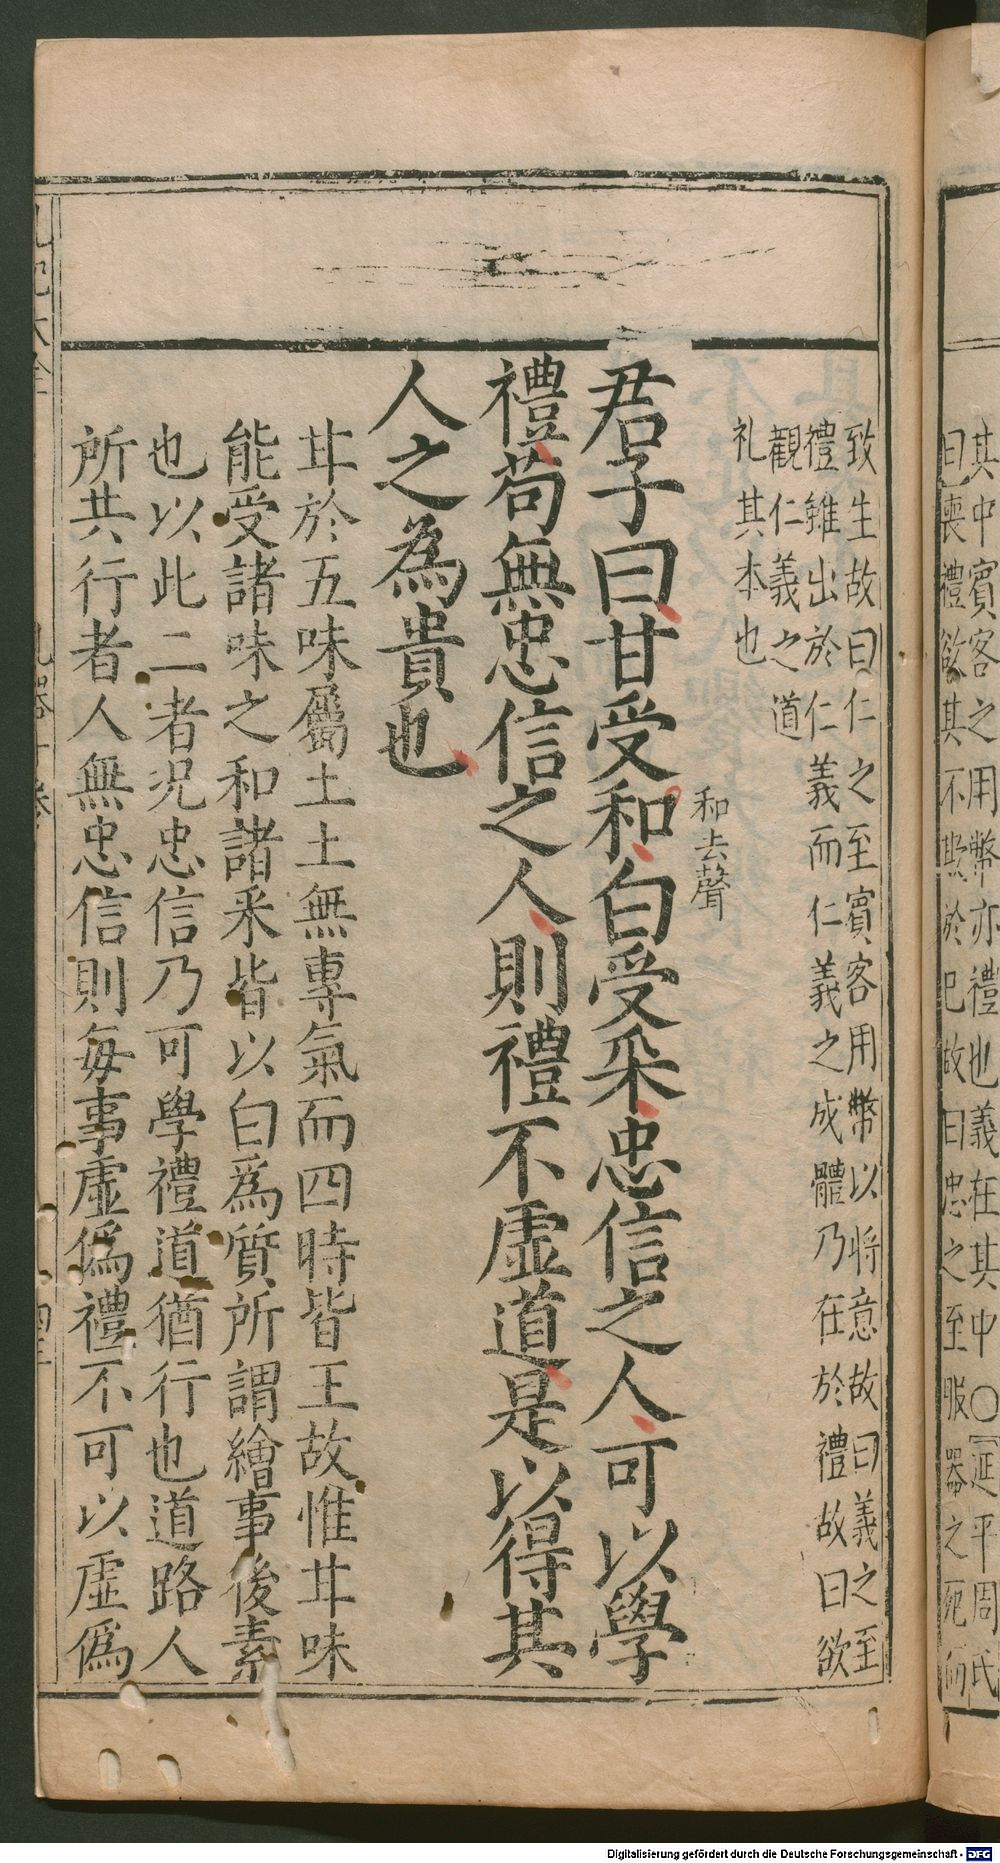 其中賓客之用幣亦禮也義在其中○延平周氏
曰喪禮欲其不欺於已故曰忠之至服器之
致生故曰仁之至賓客用幣以將意故曰義之至
禮雖出於仁義而仁義之成體乃在於禮故曰欲
觀仁義之道
礼其本也
和去聲
君子曰甘受和白受采忠信之人可以學
禮苟無忠信之人則禮不虛道是以得其
人之為貴也
甘於五味屬土土無專氣而四時皆王故惟甘味
能受諸味之和諸采皆以白為質所謂繪事後素
也以此二者况忠信乃可學禮道猶行也道路人
所共行者人無忠信則每事虛僞禮不可以虛僞
Digitalisierung gefördert durch die Deutsche Forschungsgemeinschaft - DFG